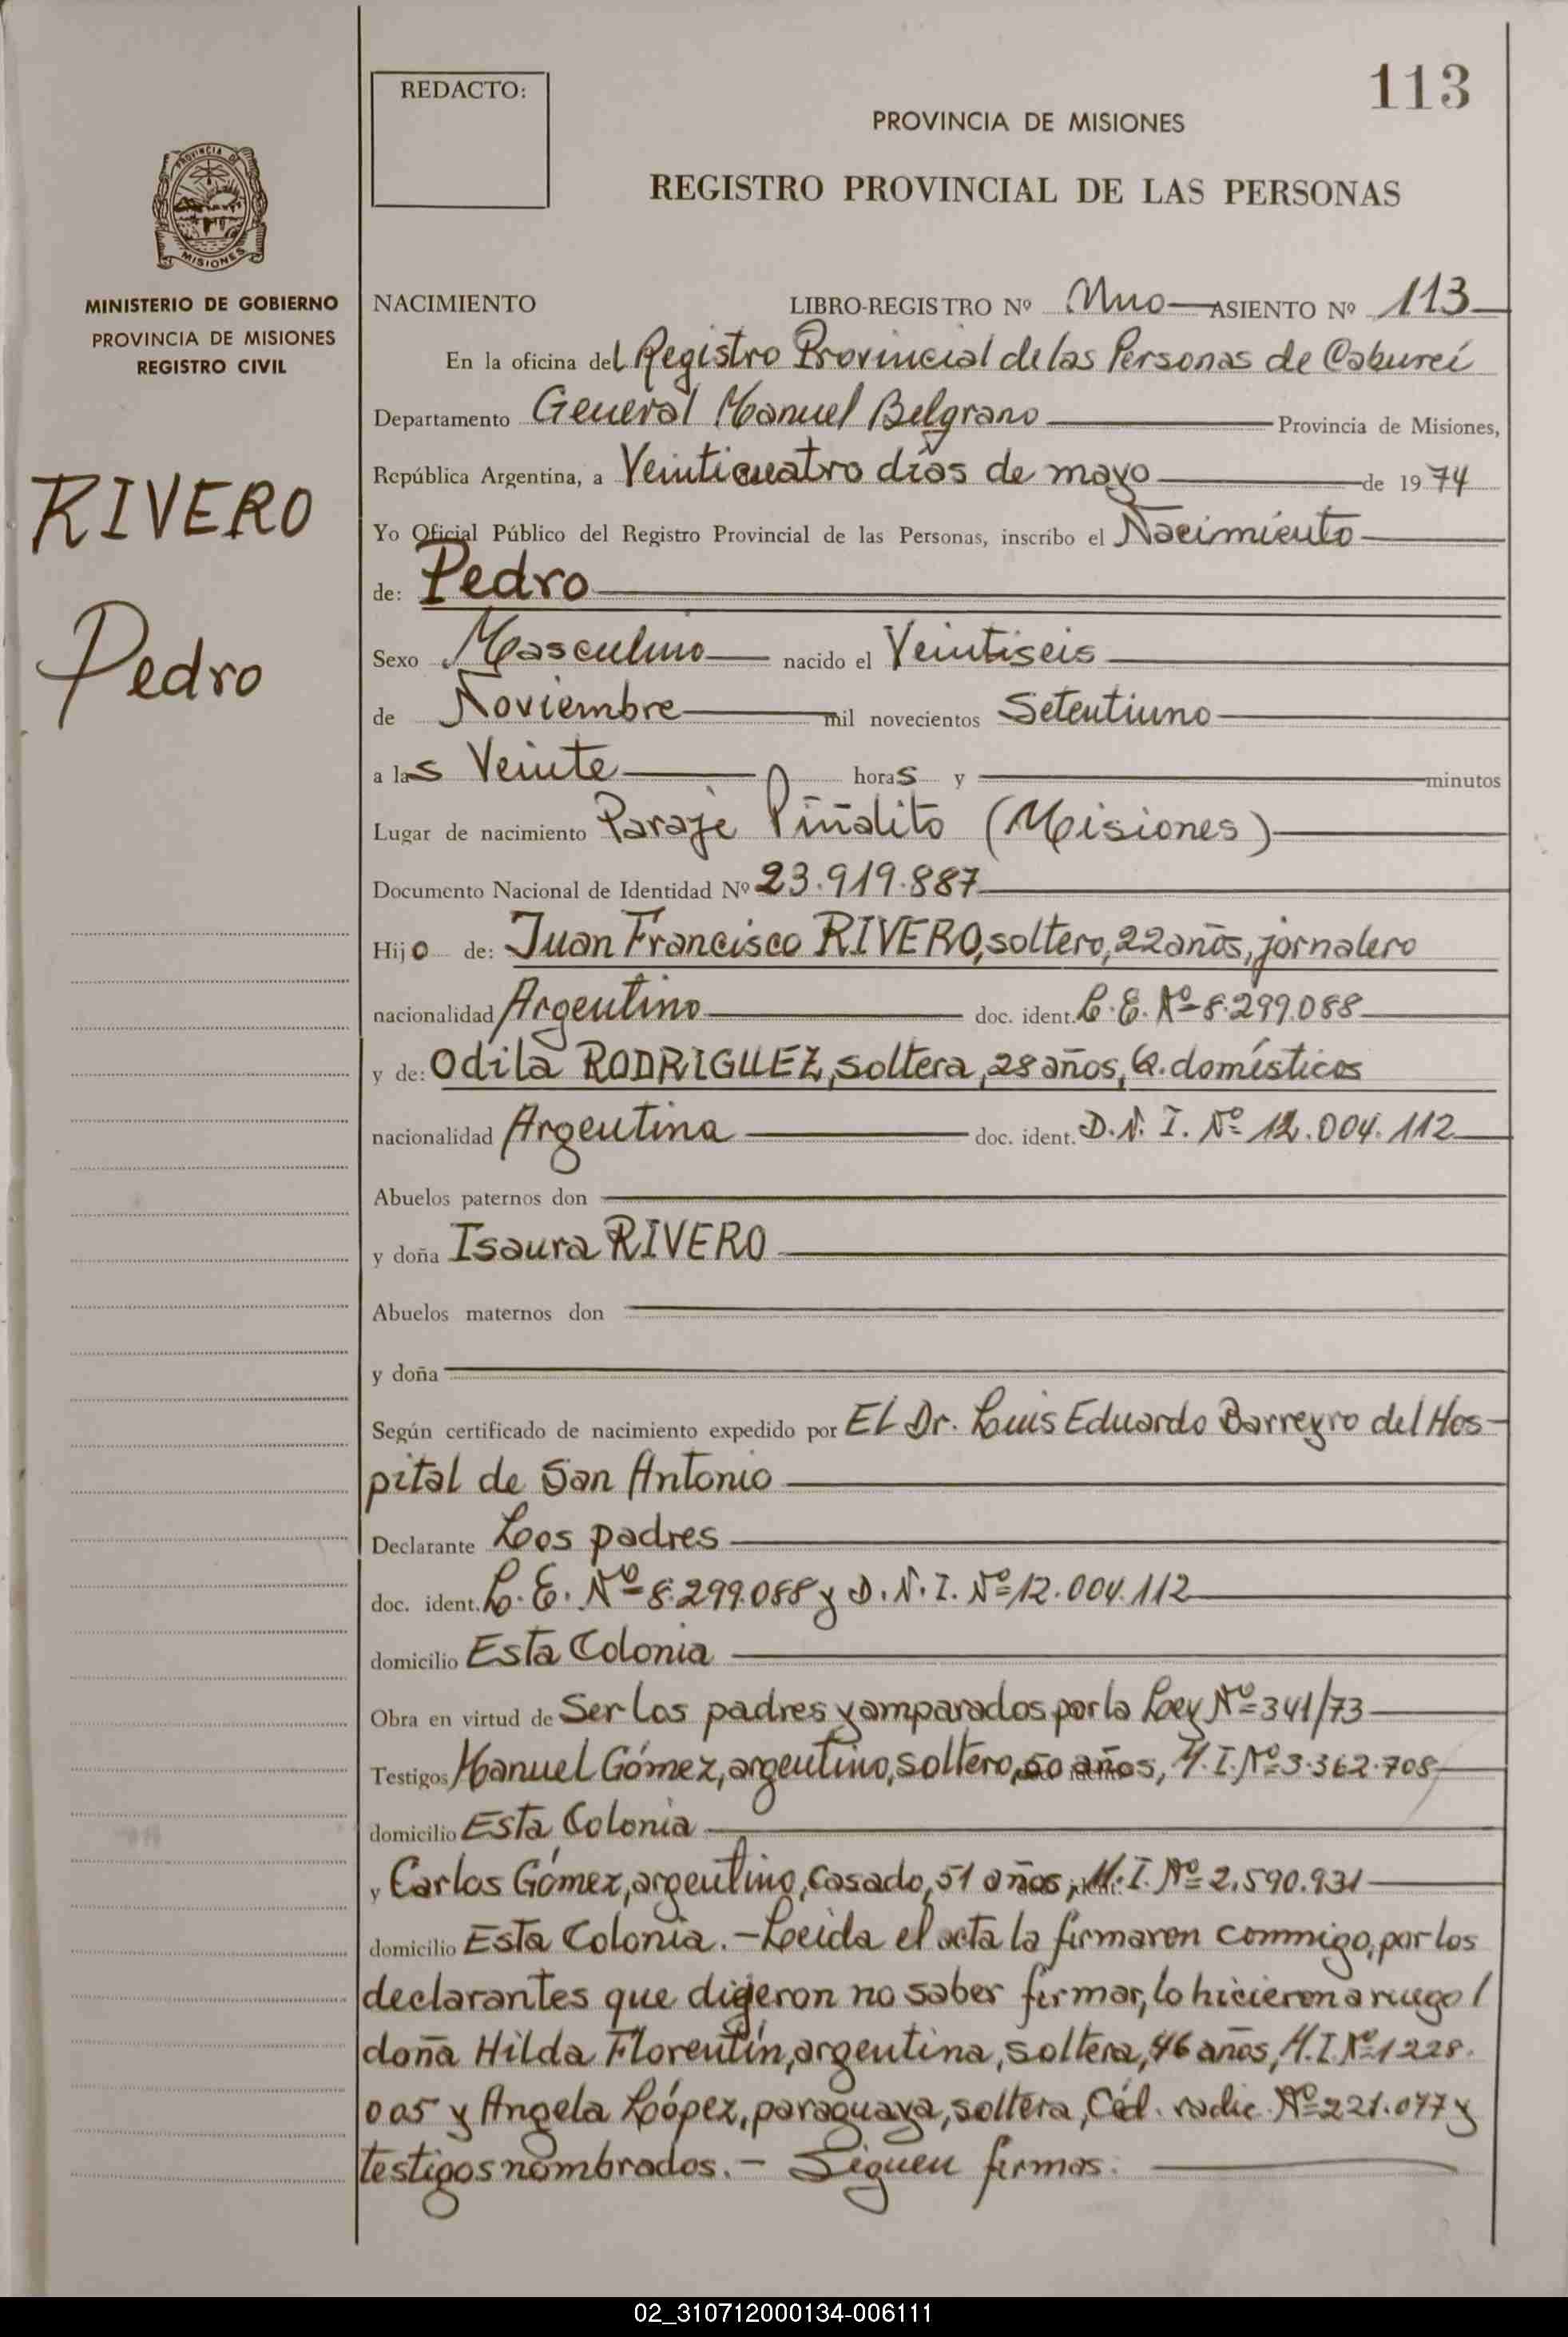 113
REDACTO:
PROVINCIA DE MISIONES
REGISTRO PROVINCIAL DE LAS PERSONAS
PROVINCIA DE
MISIONES
MINISTERIO DE GOBIERNO
PROVINCIA DE MISIONES
REGISTRO CIVIL
RIVERO
Pedro
NACIMIENTO LIBRO-REGISTRO Nº Uno ASIENTO Nº 113
En la oficina del Registro Provincial de las Personas de Cabureí
Departamento General Manuel Belgrano Provincia de Misiones,
República Argentina, a Veinticuatro días de mayo de 1974
Yo Oficial Público del Registro Provincial de las Personas, inscribo el Nacimiento
de: Pedro
Sexo Masculino nacido el Veintiseis
de Noviembre mil novecientos Setentiuno
a las Veinte horas y minutos
Lugar de nacimiento Paraje Piñalito (Misiones)
Documento Nacional de Identidad Nº 23.919.887
Hijo de: Juan Francisco RIVERO, soltero, 22 años, jornalero
nacionalidad Argentino doc. ident. L.E. Nº 8.299.088
y de: Odila RODRIGUEZ, soltera, 28 años, Q. domésticos
nacionalidad Argentina doc. ident. D.N.I. Nº 12.004.112
Abuelos paternos don
y doña Isaura RIVERO
Abuelos maternos don
y doña
Según certificado de nacimiento expedido por El Dr. Luis Eduardo Barreyro del Hos-
pital de San Antonio
Declarante Los padres
doc. ident. L.E. Nº 8.299.088 y D.N.I. Nº 12.004.112
domicilio Esta Colonia
Obra en virtud de Ser los padres y amparados por la Ley Nº 341/73
Testigos Manuel Gómez, argentino, soltero, 50 años, M.I. Nº 3.362.708
domicilio Esta Colonia
y Carlos Gómez, argentino, casado, 51 años, M.I. Nº 2.590.931
domicilio Esta Colonia.- Leida el acta la firmaron commigo, por los
declarantes que digeron no saber firmar, lo hicieron a ruego
doña Hilda Florentín, argentina, soltera, 46 años, M.I. Nº 1228.
005 y Angela López, paraguaya, soltera, Céd. radic. Nº 221.077 y
testigos nombrados.- Siguen firmas.
02_310712000134-006111